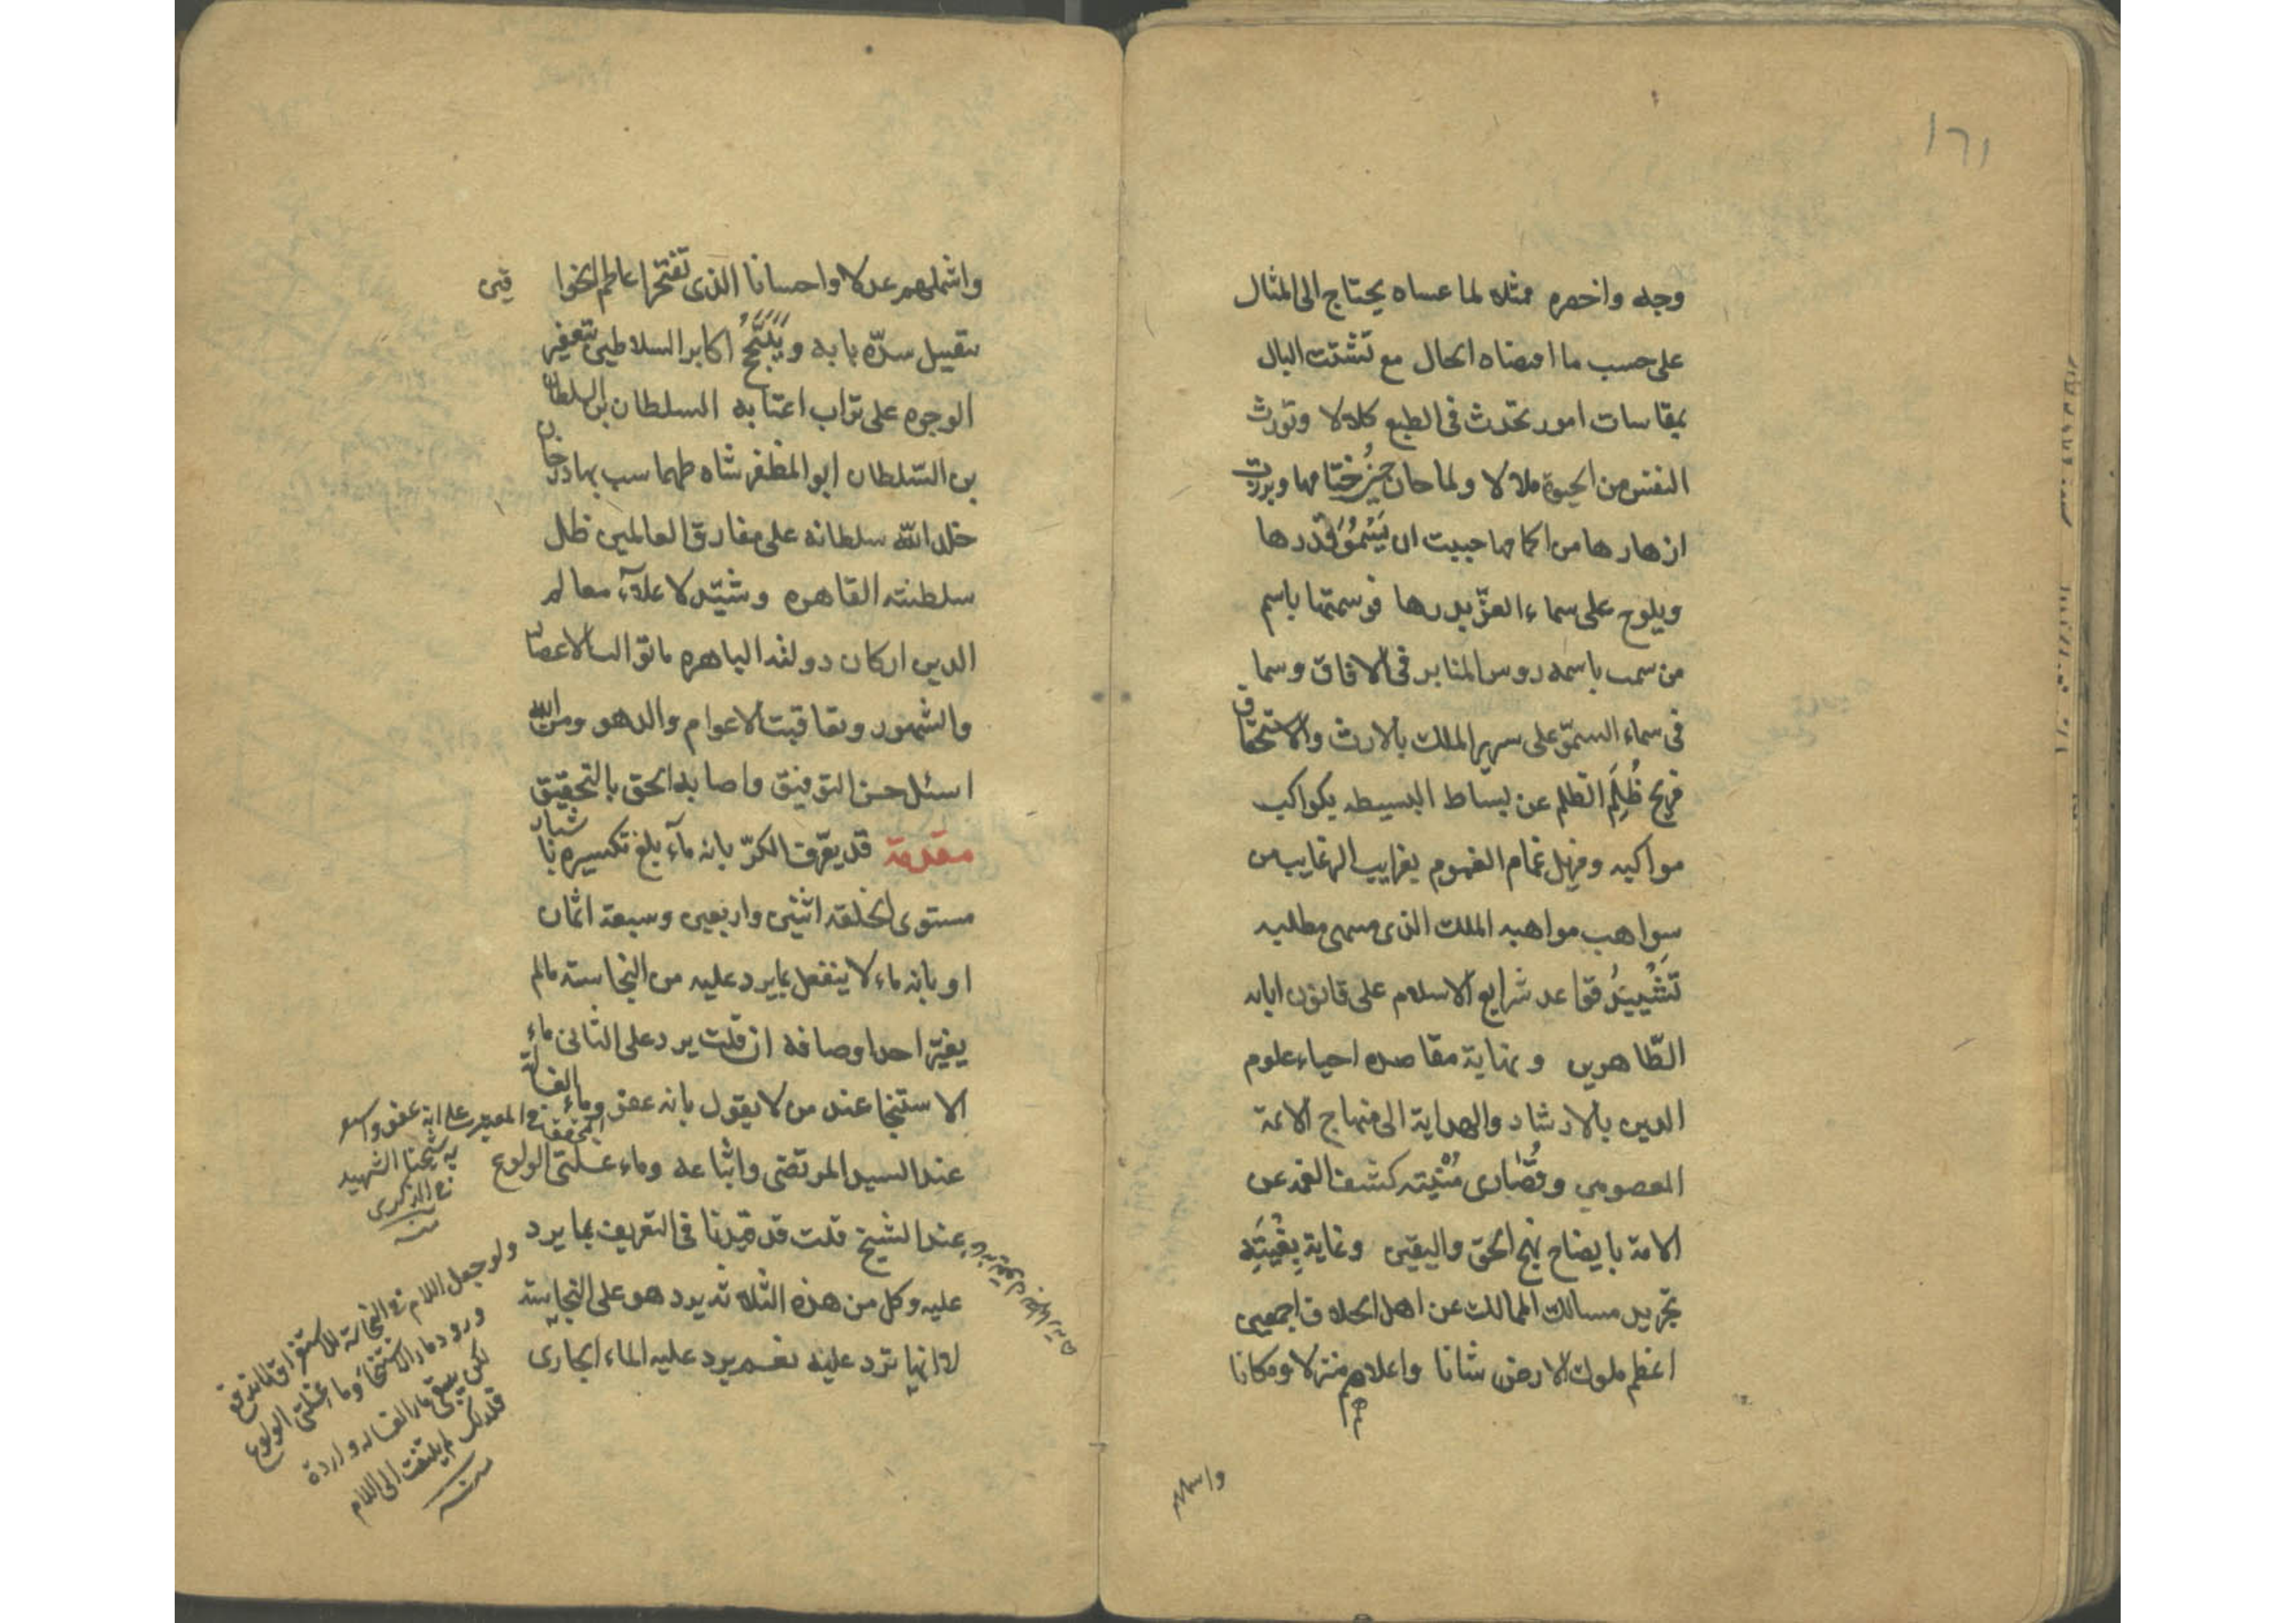 ١٦١
وجه واخصره ممثلا لما عساه يحتاج الى المثال
على حسب ما اقتضاه الحال مع تشتت البال
بمقاسات امور تحدث فى الطبع كلالا وتورث
النفس من الحيوة ملالا ولما حان حين ختامها وبرزت
ازهارها من اكمامها حببت ان يَسْمُوَ قدرها
ويلوح على سماء العزّ بدرها فوسمتها باسم
من سمت باسمه روس المنابر فى الافاق وسما
فى سماء السموّ على سرير الملك بالارث والاستحقاق
ظُلَمِ الظلم عن بساط البسيطه بكواكب
مواكبه ومزيل غمام الغموم بغرايب الرغايب من
سواهب مواهبه الملك الذى مطلبه
تَشْيِيدُ قواعد شرايع الاسلام على قانون ابايه
الطّاهرين ونهاية مقاصده احياء علوم
الدين بالارشاد والهداية الى منهاج الائمة
المعصومين وقُصَارى مُنْيته كشف الغمه عن
الامة بايضاح نهج الحق واليقين وغاية بِغْيَتِه
تجريد مسالك الممالك عن اهل الخلاف اجمعين
اعظم ملوك الارض شانا واعلاهم منزلا ومكانا
واشملهم
واشملهم عدلا واحسانا الذى تفتخر اعاظم الخوا قين
بتقبيل سدّه بابه و اكابر السلاطين بتعفير
الوجوه على تراب اعتابه السلطان بن السلطان
بن السّلطان ابو المظفر شاه طهماسب بهادرخان
خلد الله سلطانه على مفارق العالمين ظل
سلطنته القاهره وشيّد لاعلآء معالم
الدين اركان دولته الباهره ما توالت الاعصار
والشهور وتعاقبت الاعوام والدهور ومن الله
اسئل حسن التوفيق واصابه الحق بالتحقيق
مقدمة قد يعرّف الكرّ بانه مآء بلغ تكسيره باشبار
مستوى الخلقه اثنين واربعين وسبعة اثمان
او بانه ماء لا ينفعل بما يرد عليه من النجاسته مالم
يغيّر احد اوصافه ان قلت يرد على الثانى ماء
الاستنجا عند من لا يقول بانه عفو وماء الغسالة
عند السيد المرتضى واتباعه وماء غسلتى الولوغ
عند الشيخ قلت قد قيّدنا فى التعريف بما يرد
عليه وكل من هذه الثلاثه يرد هو على النجاسته
لا انها ترد عليه نعم يرد عليه الماء الجارى
المحقق فى المعتبر على انه عفو
شيخنا الشهيد
فى الذكرى
منه
ولو جعل اللام فى النجاسة للاستغراق لاندفع
ورود ماء الاستنجا وماء غسلتى الولوغ
لكن يبقى ماء الغساله واردة
فلذلك لم يلتفت الى اللام
منه